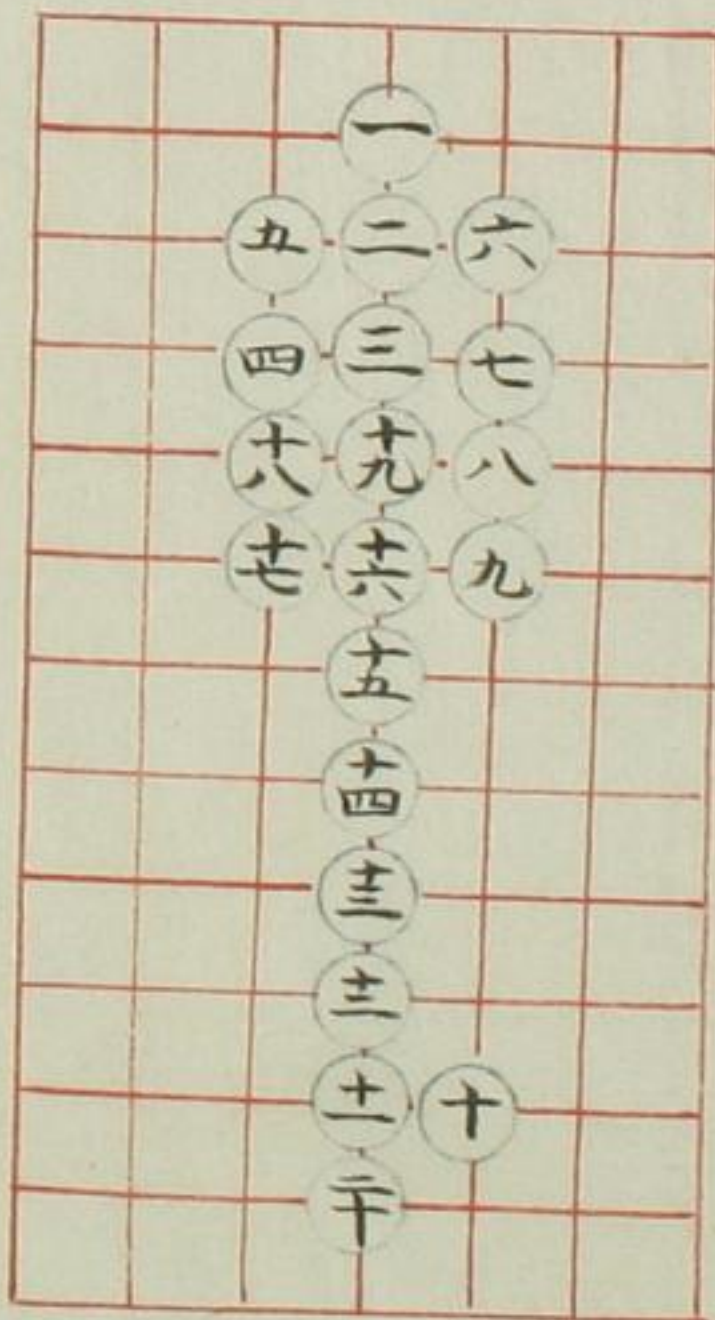 一
五 二 六
四 三 七
十八 十九 八
十七 十六 九
十五
十四
十三
十二
十一 十
二十